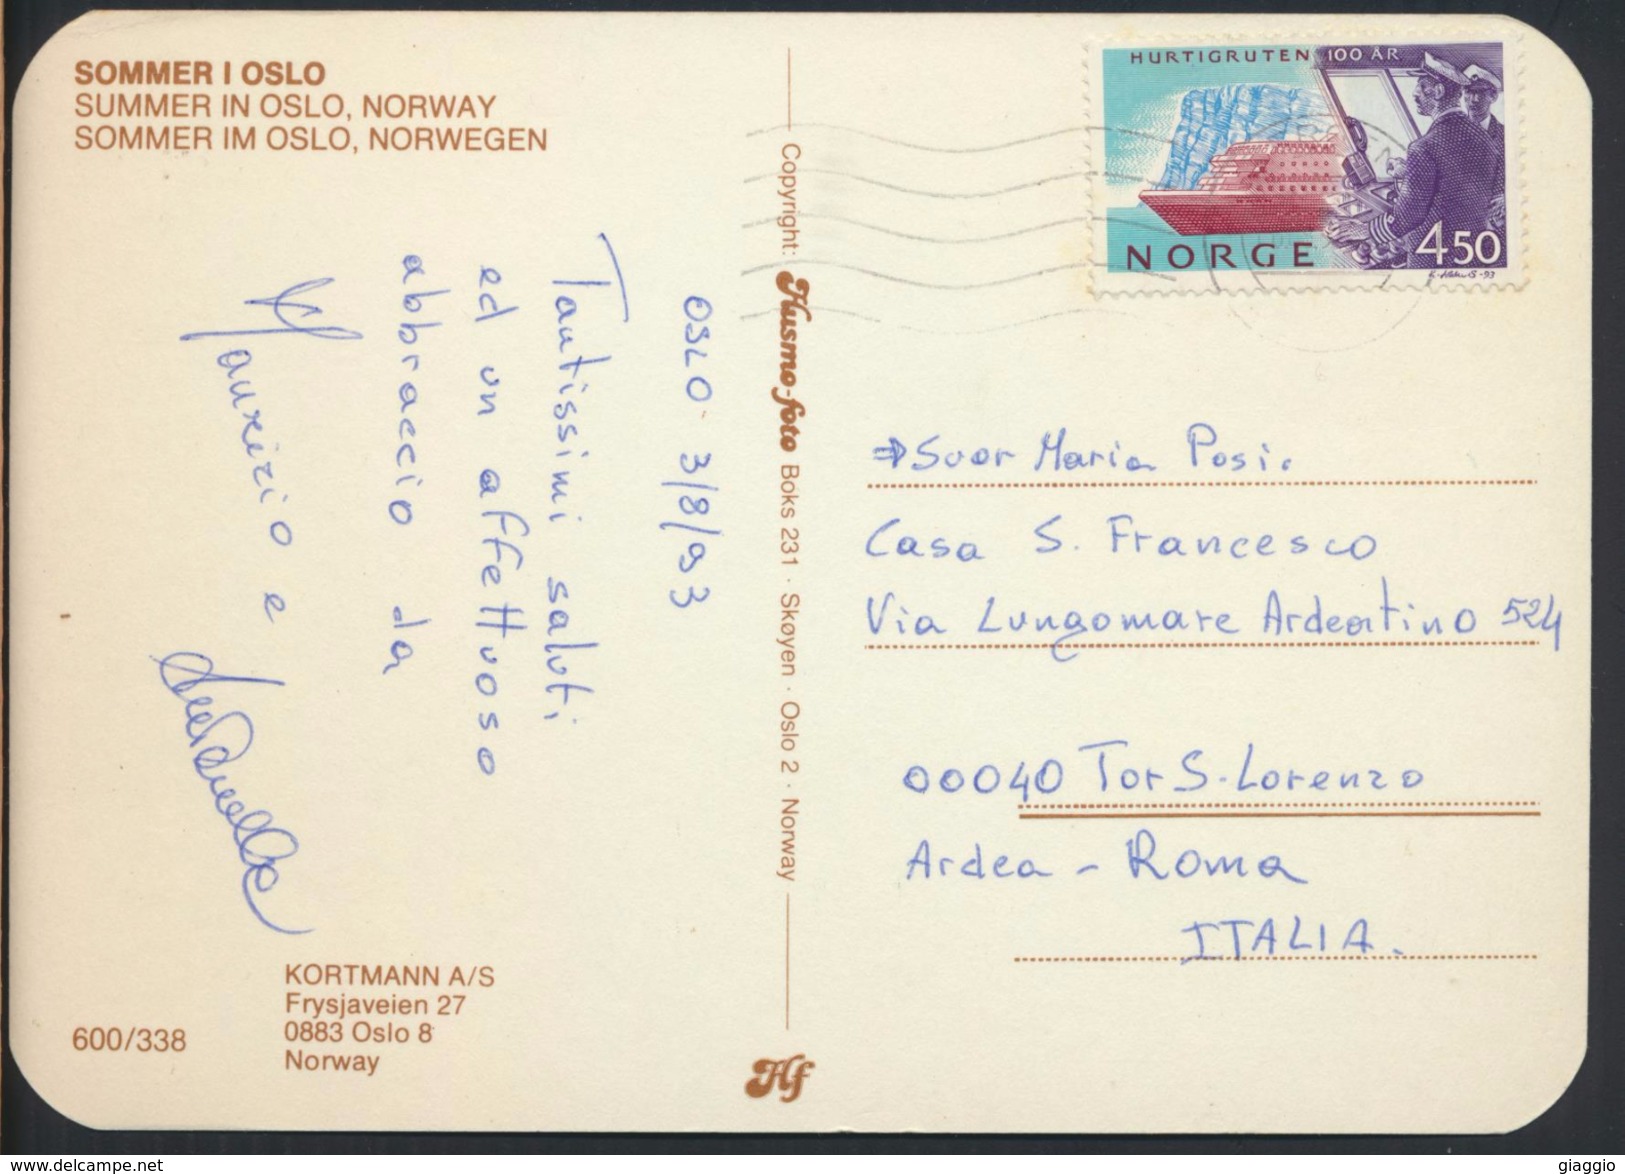 SOMMER I OSLO
SUMMER IN OSLO, NORWAY
SOMMER IM OSLO, NORWEGEN
HURTIGRUTEN 100 ÅR
NORGE
450
OSLO 3/8/93
Tantissimi saluti
ed un affettuoso
abbraccio da
Maurizio e
Copyright: Husmo-foto Boks 231 · Skøyen · Oslo 2 · Norway
Suor Maria Posi.
Casa S. Francesco
Via Lungomare Ardeatino 524
00040 Tor S. Lorenzo
Ardea - Roma
ITALIA.
KORTMANN A/S
Frysjaveien 27
0883 Oslo 8
Norway
600/338
Hf
giaggio
www.delcampe.net